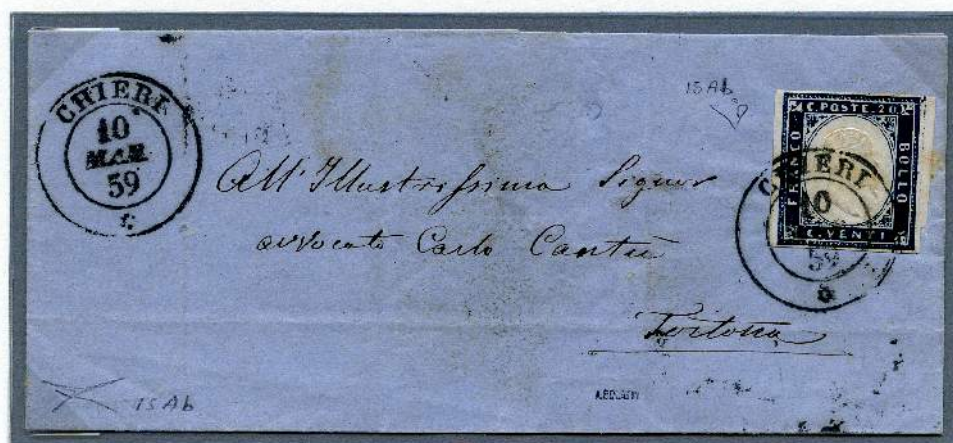 CHIERI
10
MAR
59
15Ab
C. POSTE. 20
FRANCO
BOLLO
C. VENTI
CHIERI
10
59
All' Illustrissimo Signor
avvocato Carlo Cantù
Tortona
15Ab